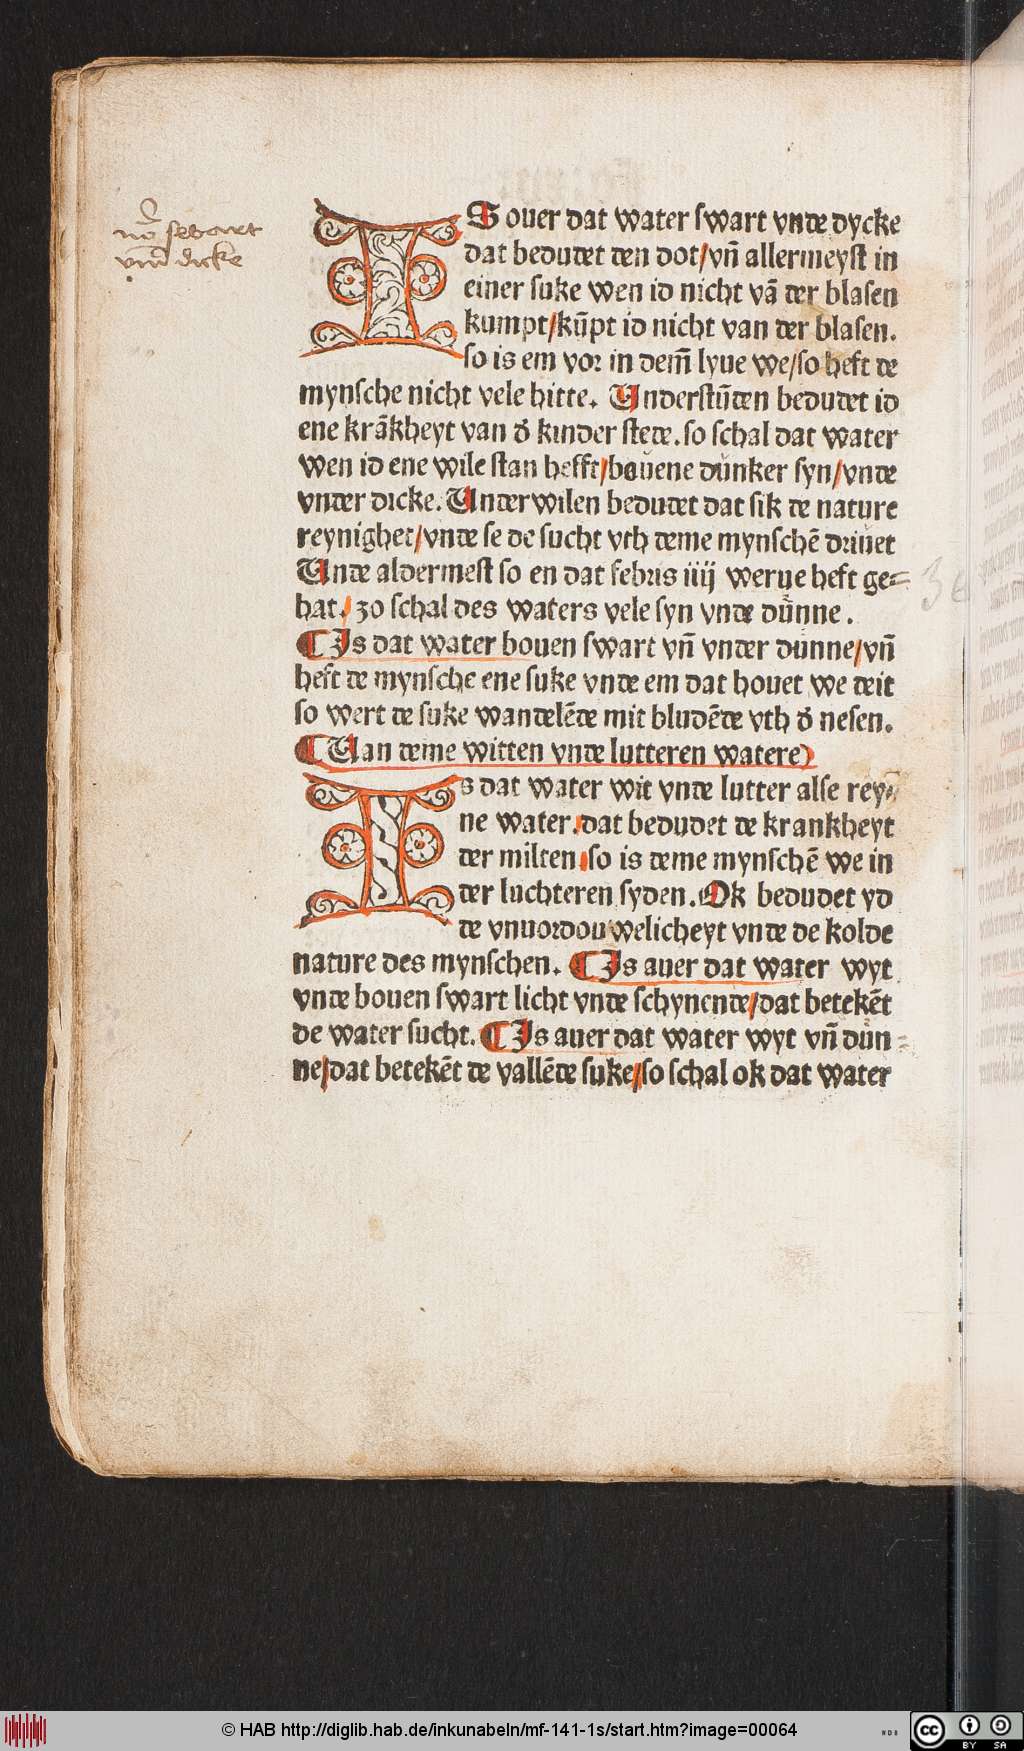 vnd swart
vnd dicke
IS ouer dat water swart vnde dycke
dat bedudet den dot/vn̄ allermeyst in
einer suke wen id nicht vā der blasen
kumpt/kūpt id nicht van der blasen.
so is em vor in dem̄ lyue we/so heft de
mynsche nicht vele hitte. Understūden bedudet id
ene krākheyt van d' kinder stede. so schal dat water
wen id ene wile stan hefft/bouene dunker syn/vnde
vnder dicke. Underwilen bedudet dat sik de nature
reynighet/vnde se de sucht vth deme mynschē driuet
Unde aldermest so en dat febris iiij werue heft ge=
hat. zo schal des waters vele syn vnde dunne.
¶ Is dat water bouen swart vn̄ vnder dunne/vn̄
heft de mynsche ene suke vnde em dat houet we deit
so wert de suke wandelēde mit bludēde vth d' nesen.
¶ Uan deme witten vnde lutteren watere
Is dat water wit vnde lutter alse rey=
ne water. dat bedudet de krankheyt
der milten so is deme mynschē we in
der luchteren syden. Ok bedudet yd
de vnuordouwelicheyt vnde de kolde
nature des mynschen. ¶ Is auer dat water wyt
vnde bouen swart licht vnde schynende/dat betekēt
de water sucht. ¶ Is auer dat water wyt vn̄ dun=
ne/dat betekēt de vallēde suke/so schal ok dat water
© HAB http://diglib.hab.de/inkunabeln/mf-141-1s/start.htm?image=00064
WDB
cc BY SA